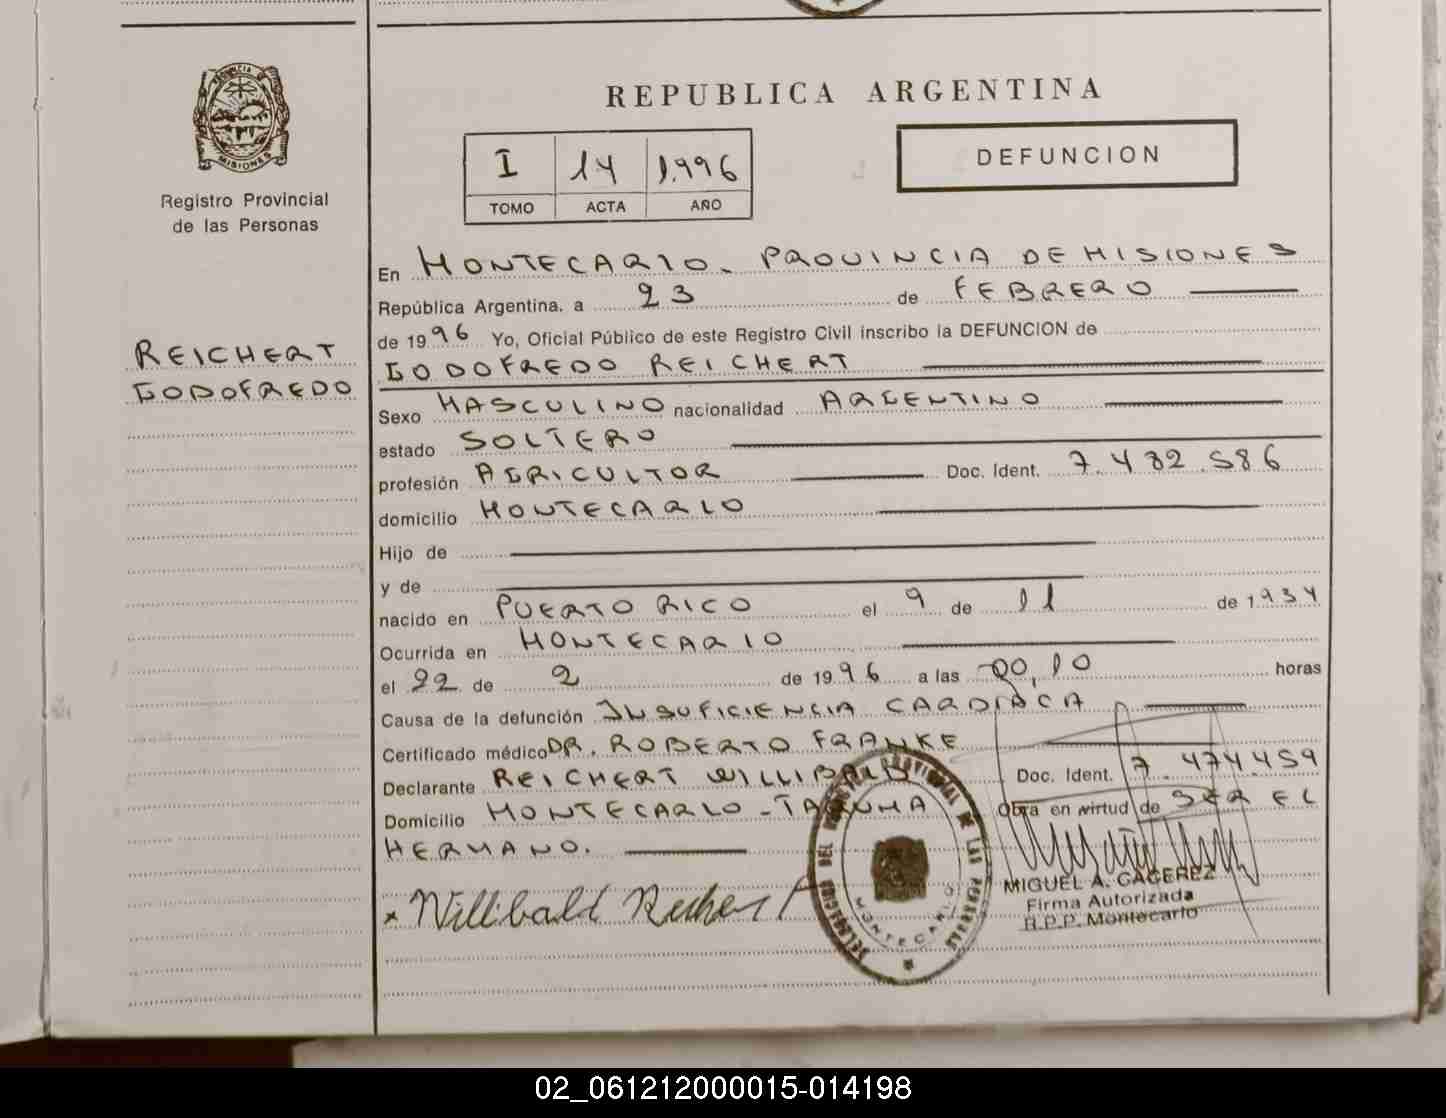 PROVINCIA DE
MISIONES
Registro Provincial
de las Personas
REICHERT
GODOFREDO
REPUBLICA ARGENTINA
I 14 1.996
TOMO ACTA AÑO
DEFUNCION
En MONTECARLO. PROVINCIA DE MISIONES
República Argentina, a 23 de FEBRERO
de 1996 Yo, Oficial Público de este Registro Civil inscribo la DEFUNCION de
GODOFREDO REICHERT
Sexo MASCULINO nacionalidad ARGENTINO
estado SOLTERO
profesión AGRICULTOR Doc. Ident. 7.482.586
domicilio MONTECARLO
Hijo de
y de
nacido en PUERTO RICO el 9 de 11 de 1934
Ocurrida en MONTECARLO
el 22 de 2 de 1996 a las 00,10 horas
Causa de la defunción INSUFICIENCIA CARDIACA
Certificado médico DR. ROBERTO FRANKE
Declarante REICHERT WILLIBALD Doc. Ident. 7.474.459
Domicilio MONTECARLO - TARUMA Obra en virtud de SER EL
HERMANO.
* Willibald Reichert
DELEGACION DEL REGISTRO PROVINCIAL DE LAS PERSONAS
MONTECARLO
MIGUEL A. CACEREZ
Firma Autorizada
R.P.P. Montecarlo
02_061212000015-014198